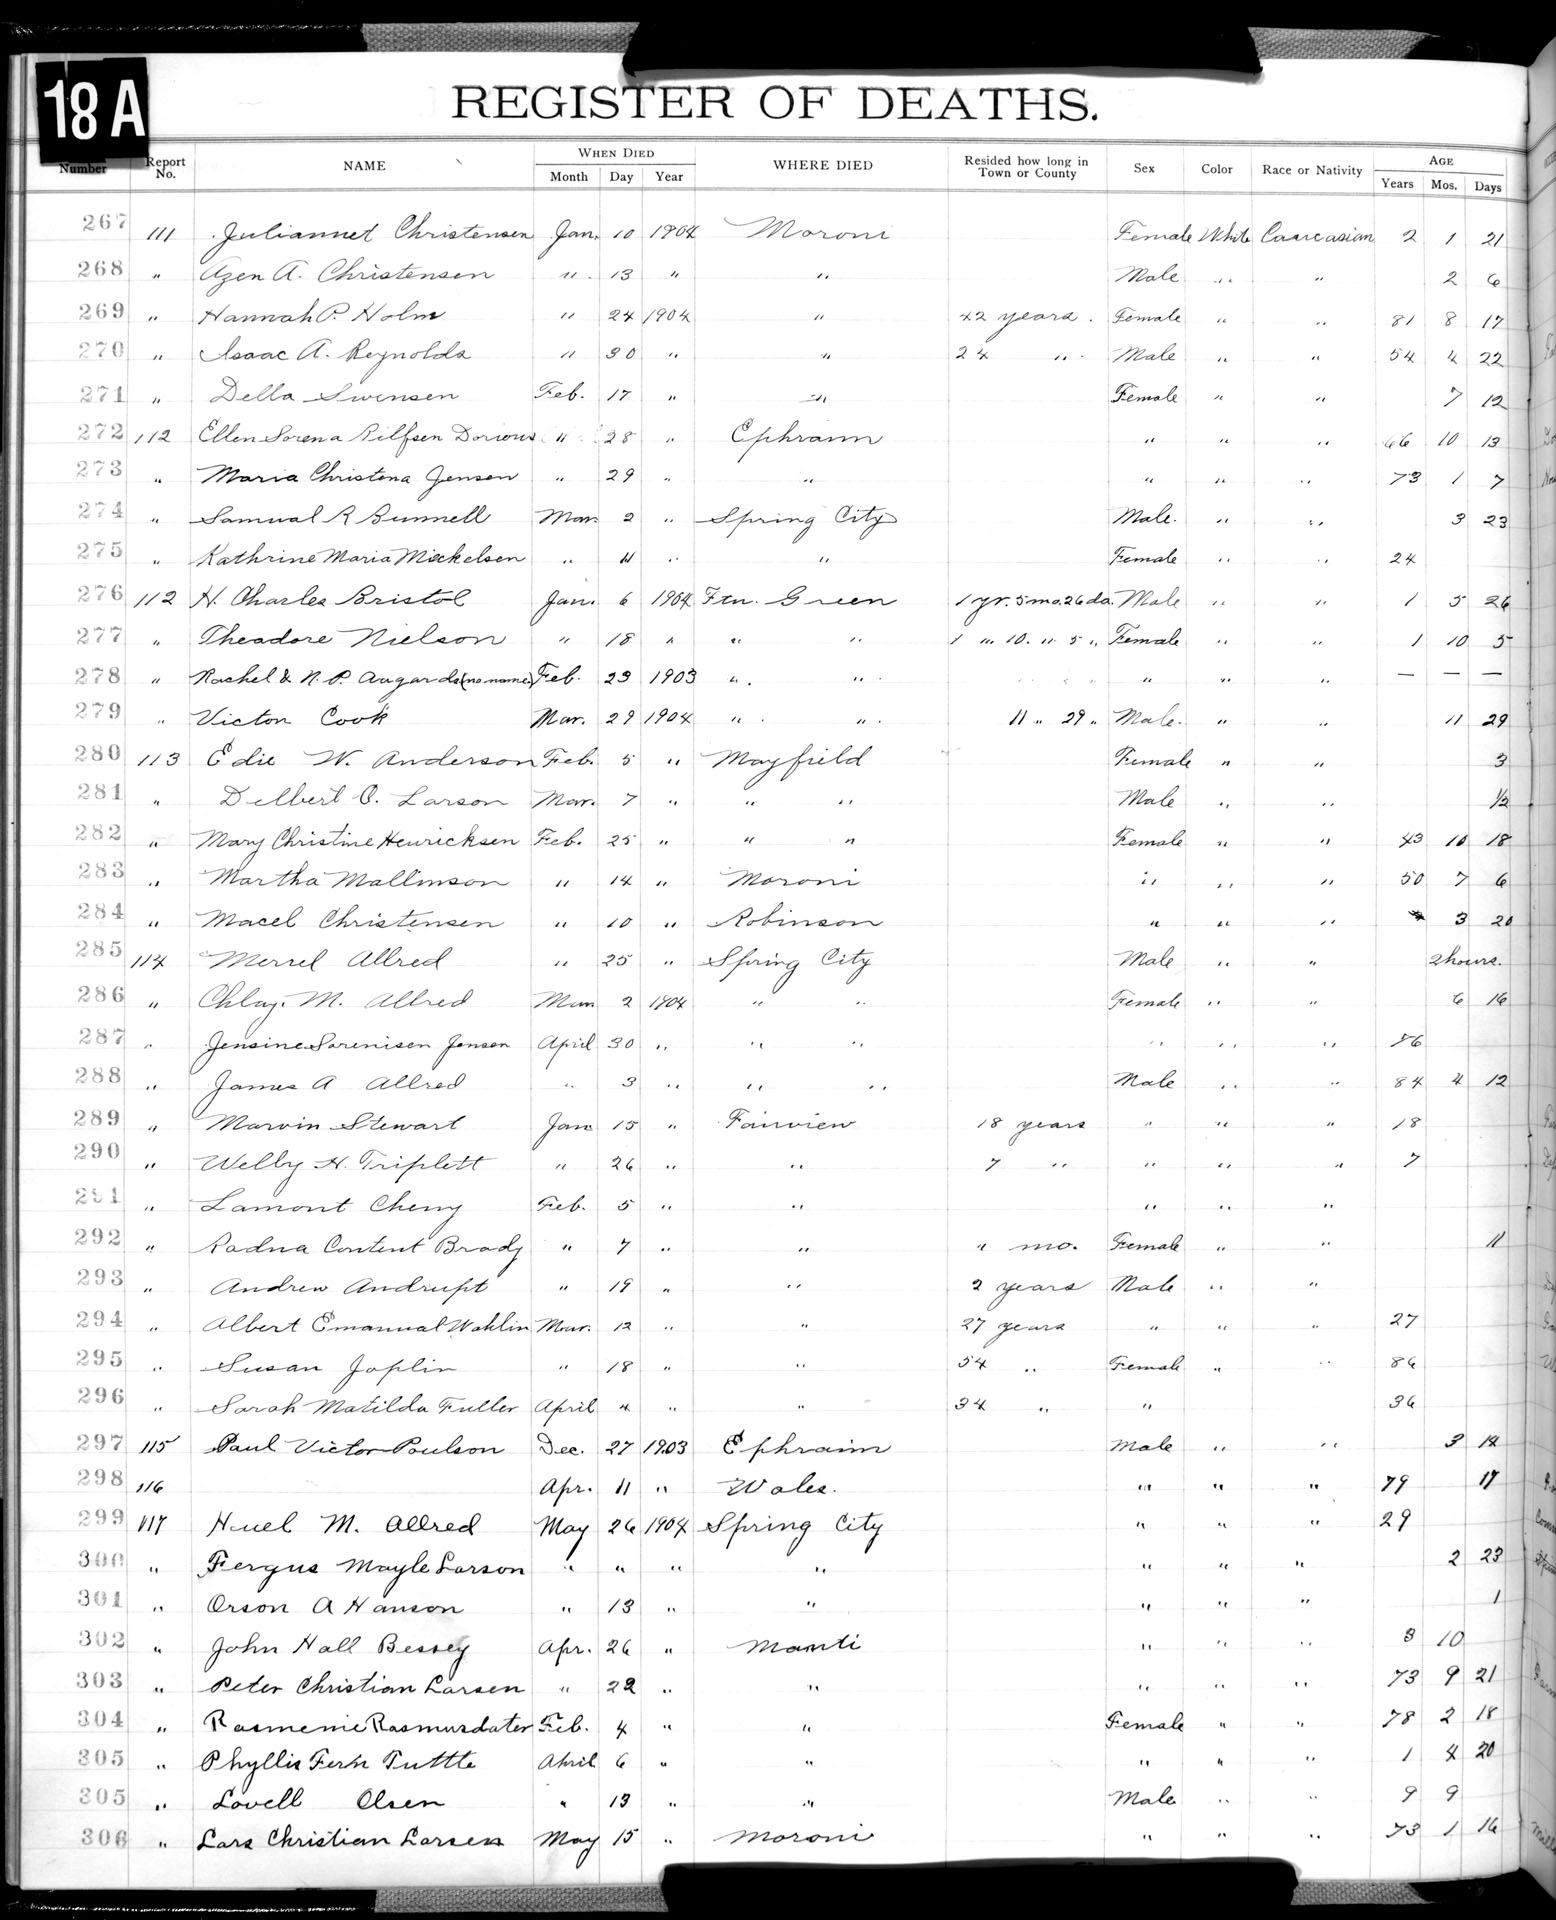 18A
REGISTER OF DEATHS.
Number Report No. NAME WHEN DIED Month Day Year WHERE DIED Resided how long in Town or County Sex Color Race or Nativity AGE Years Mos. Days
267 111 Juliannet Christensen Jan. 10 1904 Moroni Female White Caucasian 2 1 21
268 " Azen A. Christensen " 13 " " Male " " 2 6
269 " Hannah P. Holm " 24 1904 " 42 years. Female " " 81 8 17
270 " Isaac A. Reynolds " 30 " " 24 " Male " " 54 4 22
271 " Della Swensen Feb. 17 " " Female " " 7 12
272 112 Ellen Sorena Dorious " 28 " Ephraim " " " 66 10 13
273 " Maria Christena Jensen " 29 " " " " " 73 1 7
274 " Samual R Bunnell Mar. 2 " Spring City Male. " " 3 23
275 " Kathrine Maria Mickelsen " 11 " " Female " " 24
276 112 H. Charles Bristol Jan. 6 1904 Ftn. Green 1 yr. 5 mo. 26 da. Male " " 1 5 26
277 " Theadore Nielson " 18 " " " 1 " 10. " 5 " Female " " 1 10 5
278 " Rachel & N. P. Augards (no name) Feb. 23 1903 " " " " " — — —
279 " Victon Cook Mar. 29 1904 " " 11 " 29 " Male. " " 11 29
280 113 Edie W. Anderson Feb. 5 " Mayfield Female " " 3
281 " Delbert O. Larson Mar. 7 " " " Male " " ½
282 " Mary Christine Henricksen Feb. 25 " " " Female " " 43 10 18
283 " Martha Mallinson " 14 " Moroni " " " 50 7 6
284 " Macel Christensen " 10 " Robinson " " " 3 20
285 114 Merrel Allred " 25 " Spring City Male " " 2 hours.
286 " Chlay. M. Allred Mar 2 1904 " " Female " " 6 16
287 " Jensine Sorenisen Jensen April 30 " " " " " " 86
288 " James A Allred " 3 " " " Male " " 84 4 12
289 " Marvin Stewart Jan 15 " Fairview 18 years " " " 18
290 " Welby H. Triplett " 26 " " 7 " " " " 7
291 " Lamont Cheny Feb. 5 " " " " "
292 " Radna Content Brady " 7 " " " mo. Female " " 11
293 " Andrew Andrupt " 19 " " 2 years Male " "
294 " Albert Emanual Wahlin Mar. 12 " " 27 years " " " 27
295 " Susan Joplin " 18 " " 54 " Female " " 86
296 " Sarah Matilda Fuller April 4 " " 34 " " 36
297 115 Paul Victor Poulson Dec. 27 1903 Ephraim Male " " 3 14
298 116 Apr. 11 " Wales. " " " 79 17
299 117 Huel M. Allred May 26 1904 Spring City " " " 29
300 " Fergus Mayle Larson " " " " " " " 2 23
301 " Orson A Hanson " 13 " " " " " 1
302 " John Hall Bessey Apr. 26 " Manti " " " 3 10
303 " Peter Christian Larsen " 22 " " " " " 73 9 21
304 " Rasmenie Rasmusdater Feb. 4 " " Female " " 78 2 18
305 " Phyllis Fern Tuttle April 6 " " " " " 1 4 20
305 " Lovell Olsen " 13 " " Male " " 9 9
306 " Lars Christian Larsen May 15 " Moroni " " " 73 1 16